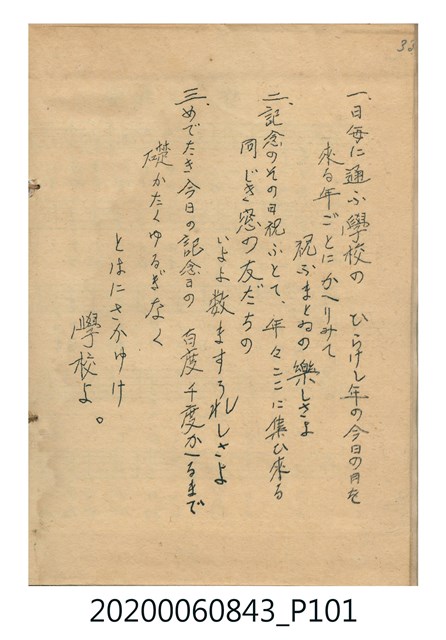 33
一、日毎に通ふ學校の ひらけし年の今日の日を
來る年ごとにかへりみて
祝ふまとゐの樂しさよ
二、記念のその日祝ふとて、年々ここに集ひ來る
同じき窓の友だちの
いよよ数ますうれしさよ
三、めでたき今日の記念日の 百度千度かへるまで
礎かたくゆるぎなく
とはにさかゆけ
學校よ。
20200060843_P101